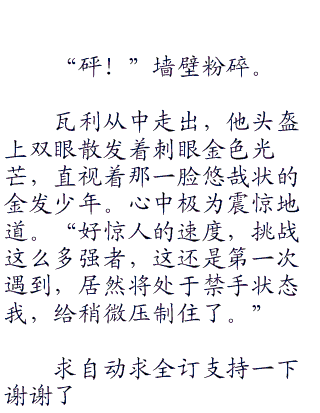 “砰！”墙壁粉碎。
瓦利从中走出，他头盔
上双眼散发着刺眼金色光
芒，直视着那一脸悠哉状的
金发少年。心中极为震惊地
道。“好惊人的速度，挑战
这么多强者，这还是第一次
遇到，居然将处于禁手状态
我，给稍微压制住了。”
求自动求全订支持一下
谢谢了